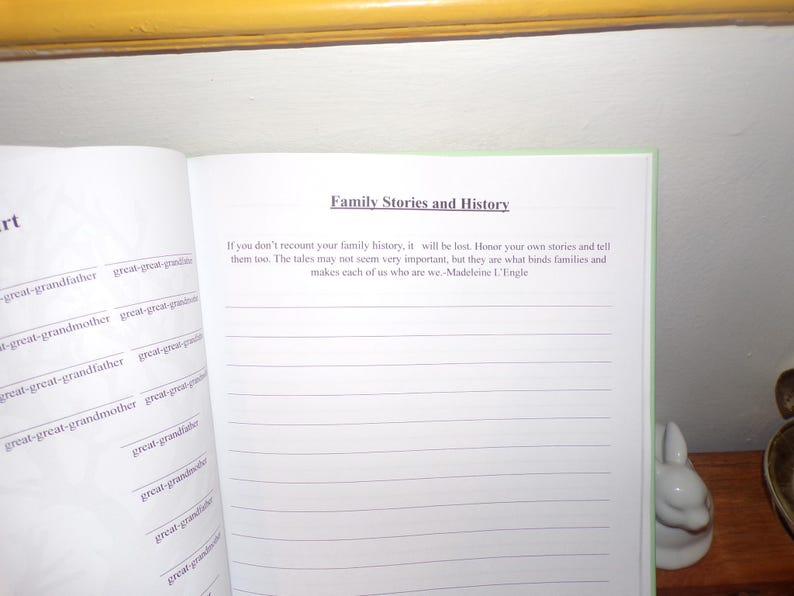 rt
great-great-grandfather
great-great-grandmother
great-great-grandfather
great-great-grandmother
great-grandfather
great-grandmother
great-grandfather
great-grandmother
Family Stories and History
If you don't recount your family history, it will be lost. Honor your own stories and tell
them too. The tales may not seem very important, but they are what binds families and
makes each of us who are we.-Madeleine L'Engle